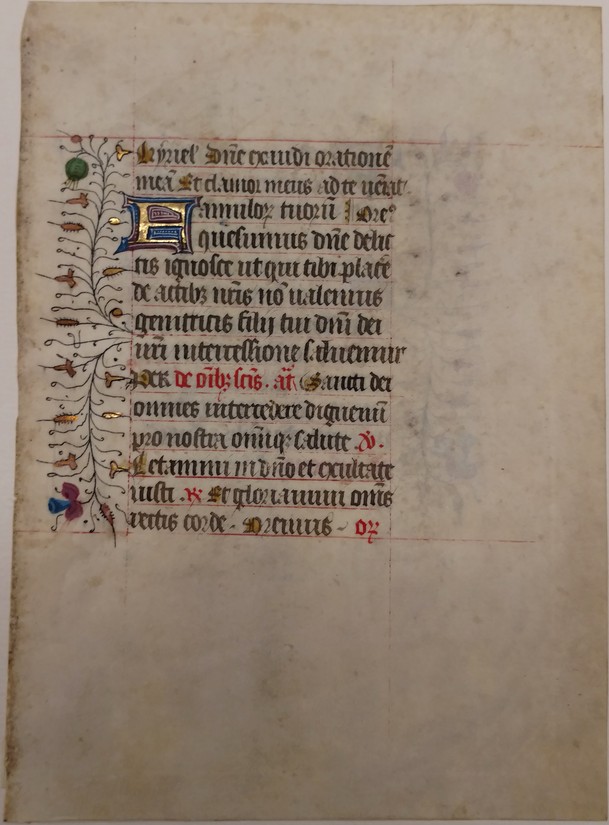 kyriel' Dñe exaudi orationē
meā Et clamor meus ad te ueniat.
Famuloꝝ tuorū Oreꝰ
quesumus dñe delic
tis ignosce ut qui tibi place
de actibꝫ nr̄is nō ualemus
genitricis filij tui dn̄i dei
nr̄i intercessione saluemur
PER de oīb; scīs. añ Sancti dei
omnes intercedere dignemī
pro nostra omīqꝫ salute .V̶.
Letamini in dn̄o et exultate
iusti .R̶ Et gloriamini om̄s
recti corde. Oremus. oꝝ